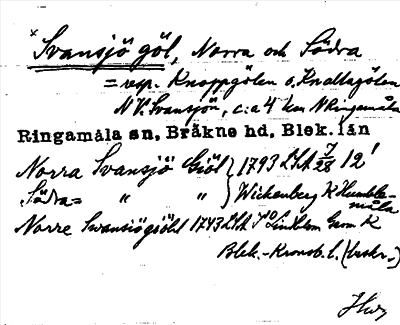 × Svansjö göl, Norra och Södra
= resp. Knoppgölen o. Knaltagölen
N V. Svansjön, c:a 4 km N Ringamåla
Ringamåla sn, Bråkne hd, Blek. län
Norra Svansjö Giöl } 1793 LSA 7/28 12'
Södra = " " } Wickenberg K Humblemåla
Norre Swansiögiöhl 1743 LSA Lindbom Geom K
Blek.-Kronob. l. (beskr.)